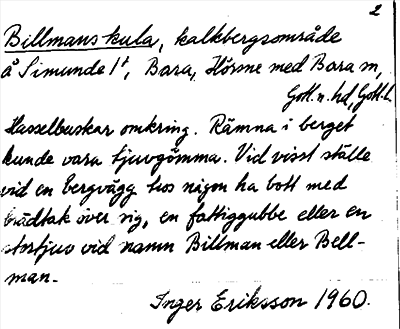 2
Billmans kula, kalkbergsområde
å Simunde 1⁴, Bara, Hörsne med Bara sn,
Gotl. n. hd, Gotl. l.
Hasselbuskar omkring. Rämna i berget
kunde vara tjuvgömma. Vid visst ställe
vid en bergvägg hos någon ha bott med
brädtak över sig, en fattiggubbe eller en
stortjuv vid namn Billman eller Bell-
man.
Inger Eriksson 1960.